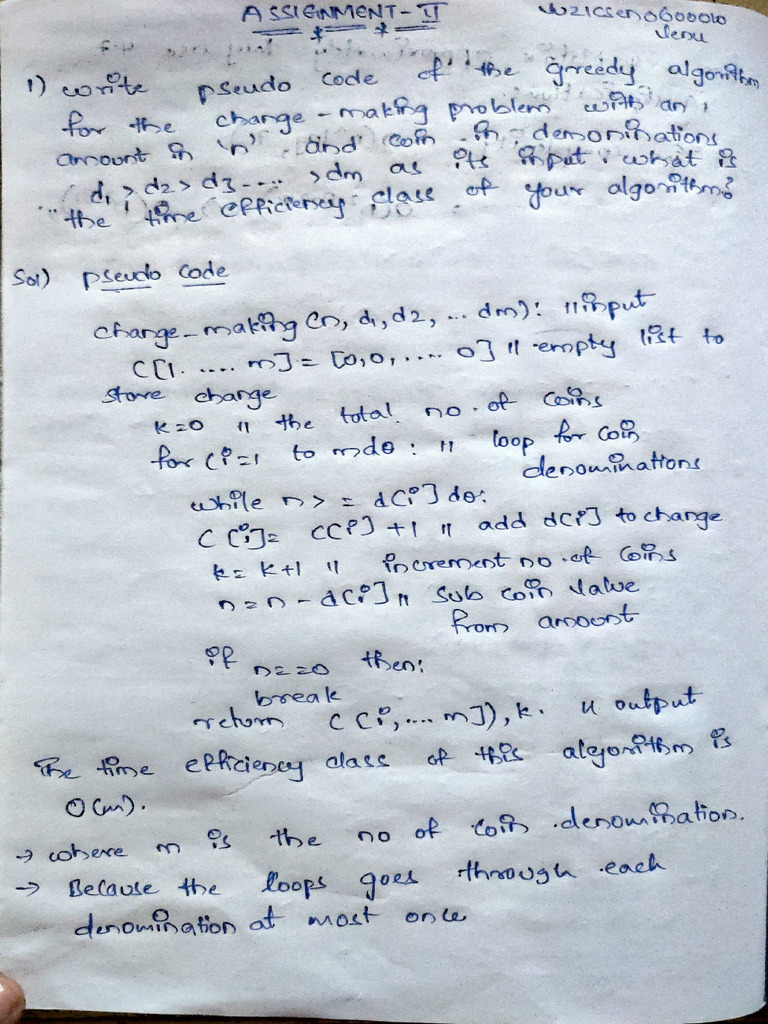 ASSIGNMENT-II
Venu
1) write pseudo code of the greedy algorithm
for the change-making problem with an
amount in 'n' and coin in demoninations
d1 > d2 > d3 .... > dm as its input. what is
the time efficiency class of your algorithm?
Sol) pseudo code
change-making (n, d1, d2, ... dm): //input
C[1. .... m] = [0,0, .... 0] // empty list to
store change
k=0 // the total no. of coins
for (i=1 to m do : // loop for coin
denominations
while n >= d[i] do:
C[i]= C[i] +1 // add d[i] to change
k= k+1 // increment no. of coins
n=n-d[i] // Sub coin value
from amount
if n==0 then:
break
return C[i, .... m]), k. // output
The time efficiency class of this algorithm is
O(m).
→ where m is the no of coin denomination.
→ Because the loops goes through each
denomination at most once